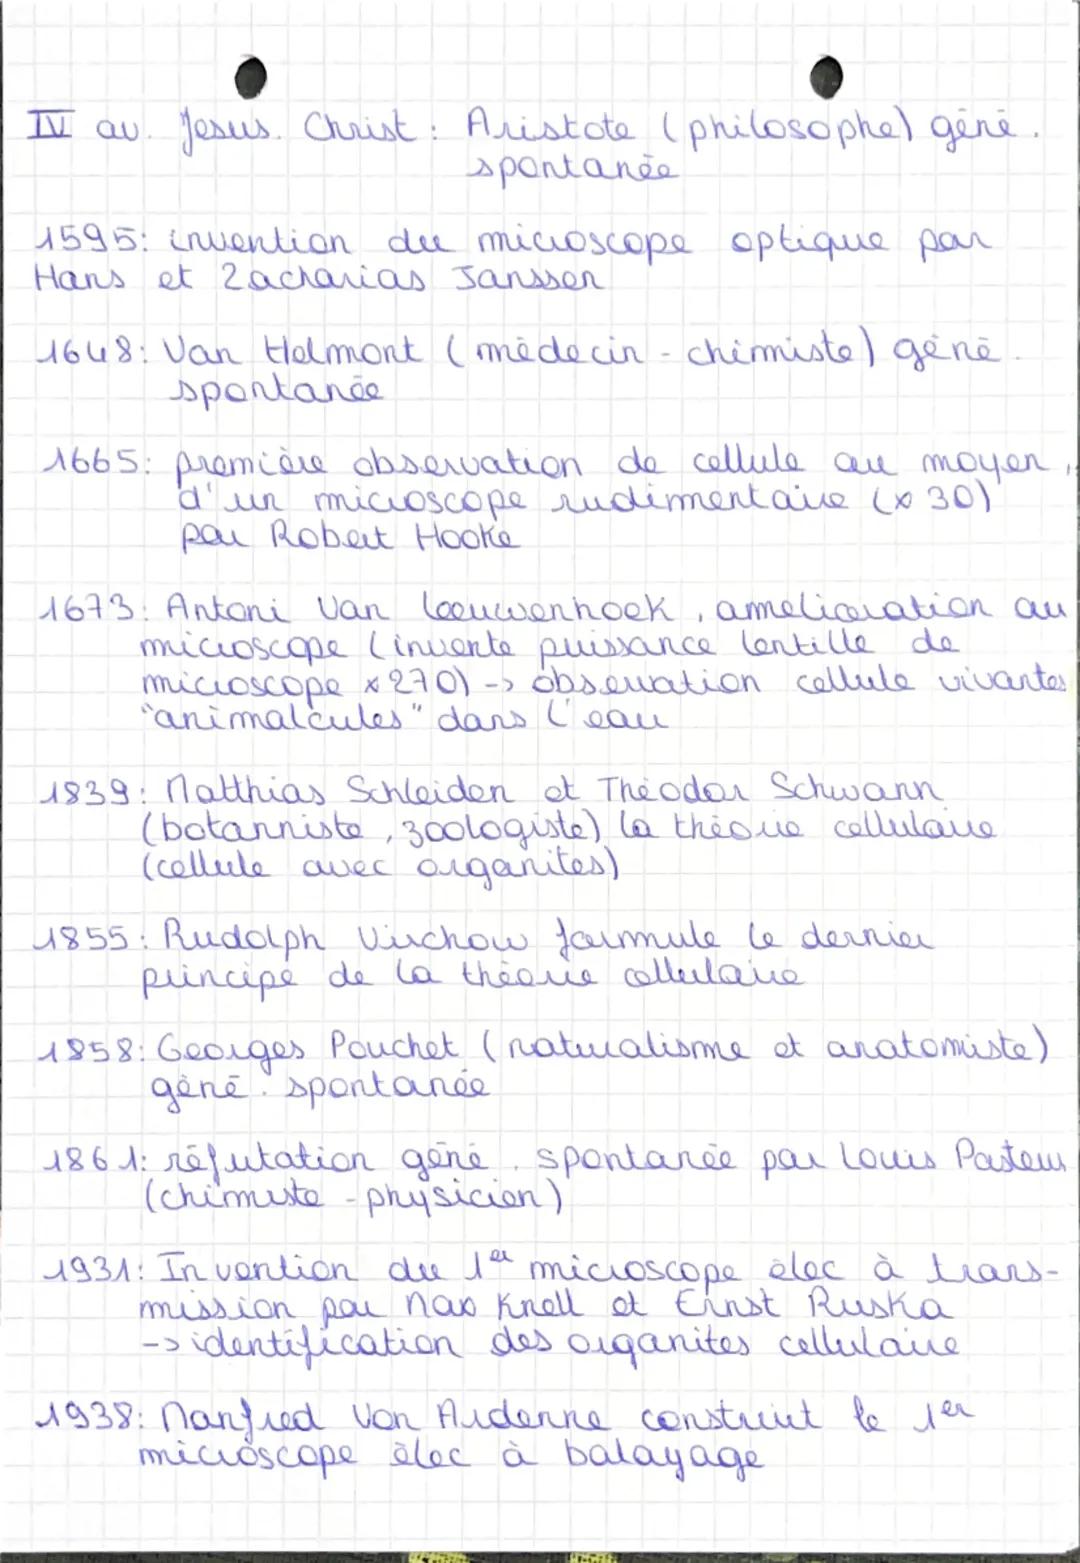 IV av. Jesus. Christ : Aristote (philosophe) géné.
spontanée
1595: invention du microscope optique par
Hans et Zacharias Janssen
1648: Van Helmont (médecin - chimiste) géné.
spontanée
1665: première observation de cellule au moyen
d'un microscope rudimentaire (x 30)
par Robert Hooke
1673: Antoni Van Leeuwenhoek, amelioration au
microscope (invente puissance lentille de
microscope x 270) -> observation cellule vivantes
"animalcules" dans l'eau
1839: Matthias Schleiden et Théodor Schwann
(botanniste, zoologiste) la théorie cellulaire
(cellule avec organites)
1855: Rudolph Virchow formule le dernier
principe de la théorie cellulaire
1858: Georges Pouchet (naturalisme et anatomiste)
géné. spontanée
1861: réfutation géné. spontanée par Louis Pasteur
(chimiste - physicien)
1931: Invention du 1er microscope élec à trans-
mission par Max Knoll et Ernst Ruska
-> identification des organites cellulaire
1938: Manfred Von Ardenne construit le 1er
microscope élec à balayage